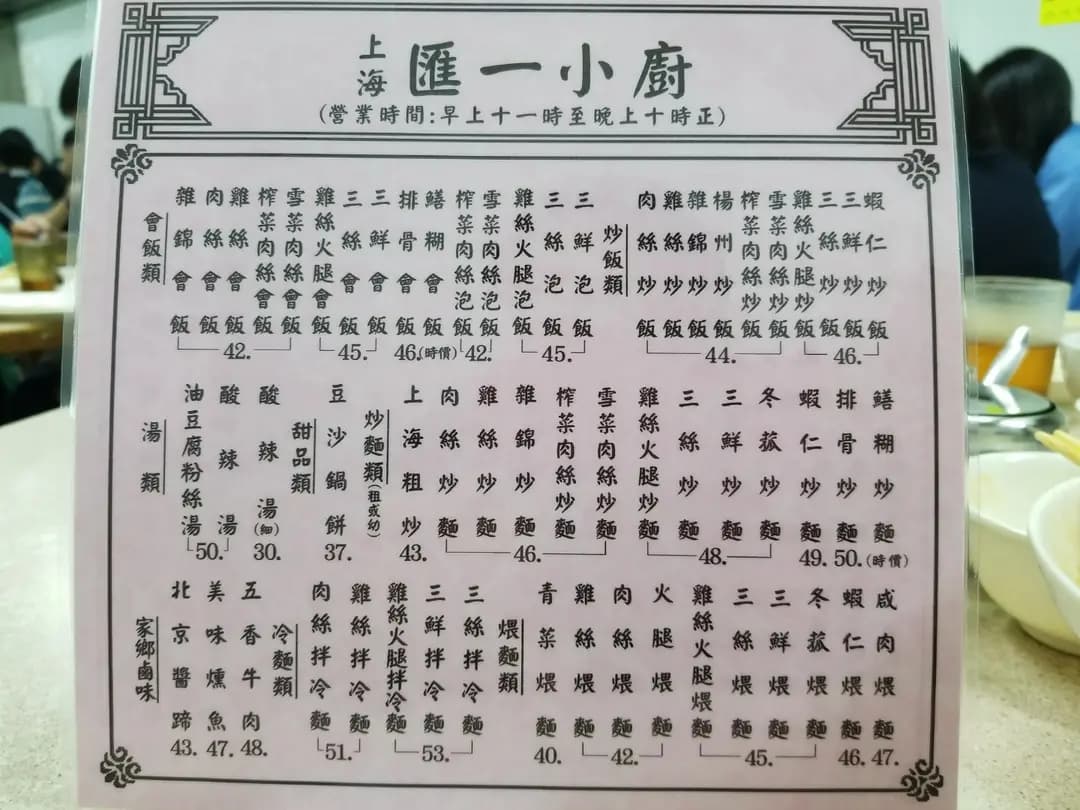 上海 匯一小廚
(營業時間:早上十一時至晚上十時正)
會飯類
雜錦會飯
肉絲會飯
雞絲會飯
榨菜肉絲會飯
雪菜肉絲會飯
42.
雞絲火腿會飯
三絲會飯
三鮮會飯
45.
排骨會飯
46.
鱔糊會飯
(時價)
榨菜肉絲泡飯
雪菜肉絲泡飯
42.
雞絲火腿泡飯
三絲泡飯
三鮮泡飯
45.
炒飯類
肉絲炒飯
雞絲炒飯
雜錦炒飯
楊州炒飯
榨菜肉絲炒飯
雪菜肉絲炒飯
44.
雞絲火腿炒飯
三絲炒飯
三鮮炒飯
蝦仁炒飯
46.
湯類
油豆腐粉絲湯
酸辣湯
50.
酸辣湯(細)
30.
甜品類
豆沙鍋餅
37.
炒麵類(粗或幼)
上海粗炒
43.
肉絲炒麵
雞絲炒麵
雜錦炒麵
榨菜肉絲炒麵
雪菜肉絲炒麵
46.
雞絲火腿炒麵
三絲炒麵
三鮮炒麵
冬菰炒麵
48.
蝦仁炒麵
49.
排骨炒麵
50.
鱔糊炒麵
(時價)
家鄉鹵味
北京醬蹄
43.
美味燻魚
47.
五香牛肉
48.
冷麵類
肉絲拌冷麵
雞絲拌冷麵
51.
雞絲火腿拌冷麵
三鮮拌冷麵
三絲拌冷麵
53.
煨麵類
青菜煨麵
40.
雞絲煨麵
肉絲煨麵
火腿煨麵
42.
雞絲火腿煨麵
三絲煨麵
三鮮煨麵
冬菰煨麵
45.
蝦仁煨麵
46.
咸肉煨麵
47.